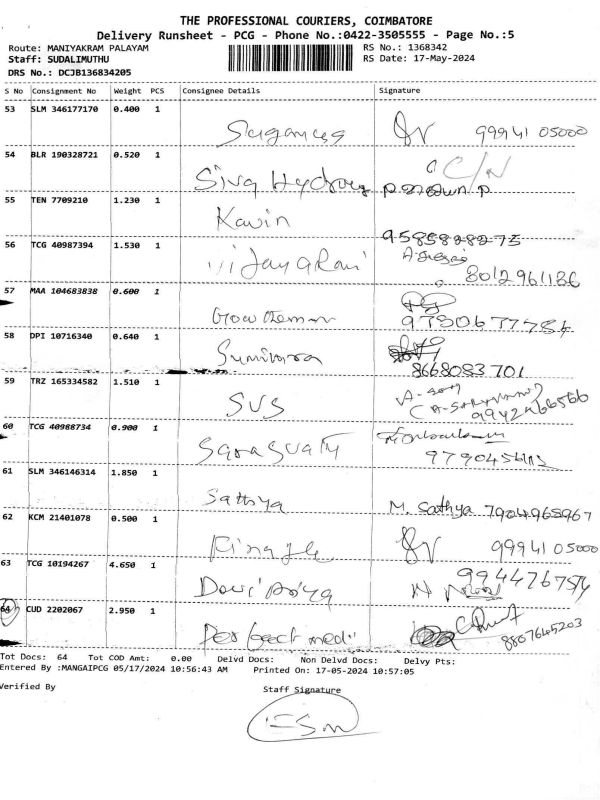 THE PROFESSIONAL COURIERS, COIMBATORE
Delivery Runsheet - PCG - Phone No.:0422-3505555 - Page No.:5
Route: MANIYAKRAM PALAYAM RS No.: 1368342
Staff: SUDALIMUTHU RS Date: 17-May-2024
DRS No.: DCJB136834205
S No Consignment No Weight PCS Consignee Details Signature
53 SLM 346177170 0.400 1
99941 05000
54 BLR 190328721 0.520 1
Siva C/N
55 TEN 7709210 1.230 1
Kavin
9585828275
56 TCG 40987394 1.530 1
Vijayarani 8012961186
57 MAA 104683838 0.600 1
Gowthaman
58 DPI 10716340 0.640 1
8668083701
59 TRZ 165334582 1.510 1
SVS
60 TCG 40988734 0.900 1
Saraswaty
61 SLM 346146314 1.850 1
Sathya M. Sathya 7904968967
62 KCM 21401078 0.500 1
99941 05000
63 TCG 10194267 4.650 1
64 CUD 2202067 2.950 1
Perfect medi 8807645203
Tot Docs: 64 Tot COD Amt: 0.00 Delvd Docs: Non Delvd Docs: Delvy Pts:
Entered By :MANGAIPCG 05/17/2024 10:56:43 AM Printed On: 17-05-2024 10:57:05
Verified By Staff Signature